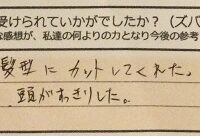 受けられていかがでしたか？（ズバ
な感想が、私達の何よりの力となり今後の参考
髪型にカットしてくれた。
頭がすっきりした。